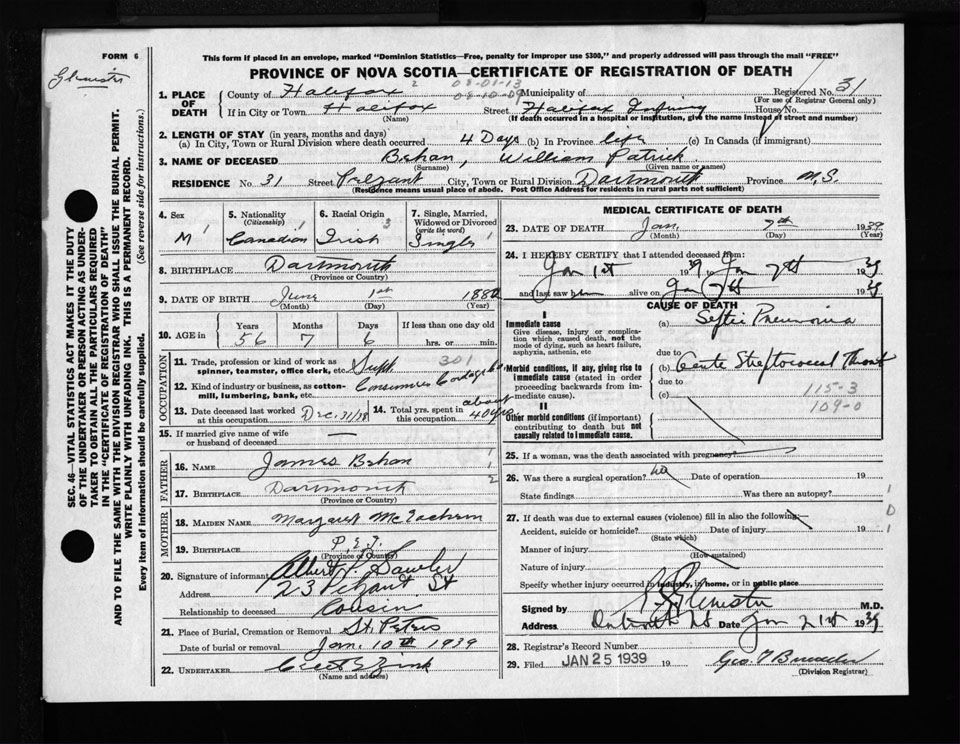 FORM 6
Glenister
This form if placed in an envelope, marked "Dominion Statistics—Free, penalty for improper use $300," and properly addressed will pass through the mail "FREE"
PROVINCE OF NOVA SCOTIA—CERTIFICATE OF REGISTRATION OF DEATH
SEC. 46—VITAL STATISTICS ACT MAKES IT THE DUTY
OF THE UNDERTAKER OR PERSON ACTING AS UNDER-
TAKER TO OBTAIN ALL THE PARTICULARS REQUIRED
IN THE "CERTIFICATE OF REGISTRATION OF DEATH"
AND TO FILE THE SAME WITH THE DIVISION REGISTRAR WHO SHALL ISSUE THE BURIAL PERMIT.
WRITE PLAINLY WITH UNFADING INK. THIS IS A PERMANENT RECORD.
Every item of information should be carefully supplied. (See reverse side for instructions.)
1. PLACE OF DEATH
County of Halifax 2 08-01-13 Municipality of Registered No. 31
08-10-09 (For use of Registrar General only)
If in City or Town Halifax Street Halifax House No.
(Name) (If death occurred in a hospital or institution, give the name instead of street and number)
2. LENGTH OF STAY (in years, months and days)
(a) In City, Town or Rural Division where death occurred 4 Days (b) In Province life (c) In Canada (if immigrant)
3. NAME OF DECEASED Behan, William Patrick
(Surname) (Given name or names)
RESIDENCE No. 31 Street City, Town or Rural Division Dartmouth Province N.S.
(Residence means usual place of abode. Post Office Address for residents in rural parts not sufficient)
4. Sex M 1
5. Nationality (Citizenship) Canadian 1
6. Racial Origin 3 Irish
7. Single, Married, Widowed or Divorced (write the word) Single 1
8. BIRTHPLACE Dartmouth
(Province or Country)
9. DATE OF BIRTH June 1st 1882
(Month) (Day) (Year)
10. AGE in Years Months Days If less than one day
56 7 6 hrs. or min.
OCCUPATION
11. Trade, profession or kind of work as spinner, teamster, office clerk, etc. Supt 301
12. Kind of industry or business, as cotton-mill, lumbering, bank, etc. Consumers Cordage Co
13. Date deceased last worked at this occupation Dec. 31/38
14. Total yrs. spent in this occupation about 40 yrs
15. If married give name of wife or husband of deceased —
FATHER
16. NAME James Behan 1
17. BIRTHPLACE Dartmouth 2
(Province or Country)
MOTHER
18. MAIDEN NAME Margaret McEachern
19. BIRTHPLACE P.E.I.
(Province or Country)
20. Signature of informant Albert
Address 23 St
Relationship to deceased Cousin
21. Place of Burial, Cremation or Removal St Peters
Date of burial or removal Jan. 10th 1939
22. UNDERTAKER Zink
(Name and address)
MEDICAL CERTIFICATE OF DEATH
23. DATE OF DEATH Jan. 7th 1939
(Month) (Day) (Year)
24. I HEREBY CERTIFY that I attended deceased from:
Jan 1st 1939 to Jan 7th 1939
and last saw him alive on Jan 7th 1939
CAUSE OF DEATH
I
Immediate cause
Give disease, injury or complication which caused death, not the mode of dying, such as heart failure, asphyxia, asthenia, etc
(a) Septic Pneumonia
due to
Morbid conditions, if any, giving rise to immediate cause (stated in order proceeding backwards from immediate cause).
(b) Acute Streptococcal Throat
due to 115-3
(c) 109-0
II
Other morbid conditions (if important) contributing to death but not causally related to immediate cause.
25. If a woman, was the death associated with pregnancy?
26. Was there a surgical operation? no Date of operation 19
State findings Was there an autopsy?
27. If death was due to external causes (violence) fill in also the following:—
Accident, suicide or homicide? Date of injury 19
(State which)
Manner of injury
(How sustained)
Nature of injury
Specify whether injury occurred in industry, in home, or in public place
Signed by Glenister M.D.
Address Dartmouth NS Date Jan 21st 1939
28. Registrar's Record Number
29. Filed JAN 25 1939 19 Geo.
(Division Registrar)